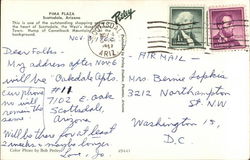 PIMA PLAZA
Scottsdale, Arizona
This is one of the outstanding shopping
the heart of Scottsdale, the West's Most
Town. Hump of Camelback Mountain in the
background.
Nov.
ARIZ
Petley
Dear Folks -
My address after Nov 6
will be Oakdale Apts.
#11
7102 E. Oak
Scottsdale,
Arizona
Will be there for at least
2 weeks & maybe longer
Love, Jo.
Color Photo by Bob Petley
AIR MAIL -
Mrs. Bernie Sopkis
3212 Northampton
St. NW
Washington 15,
D.C.